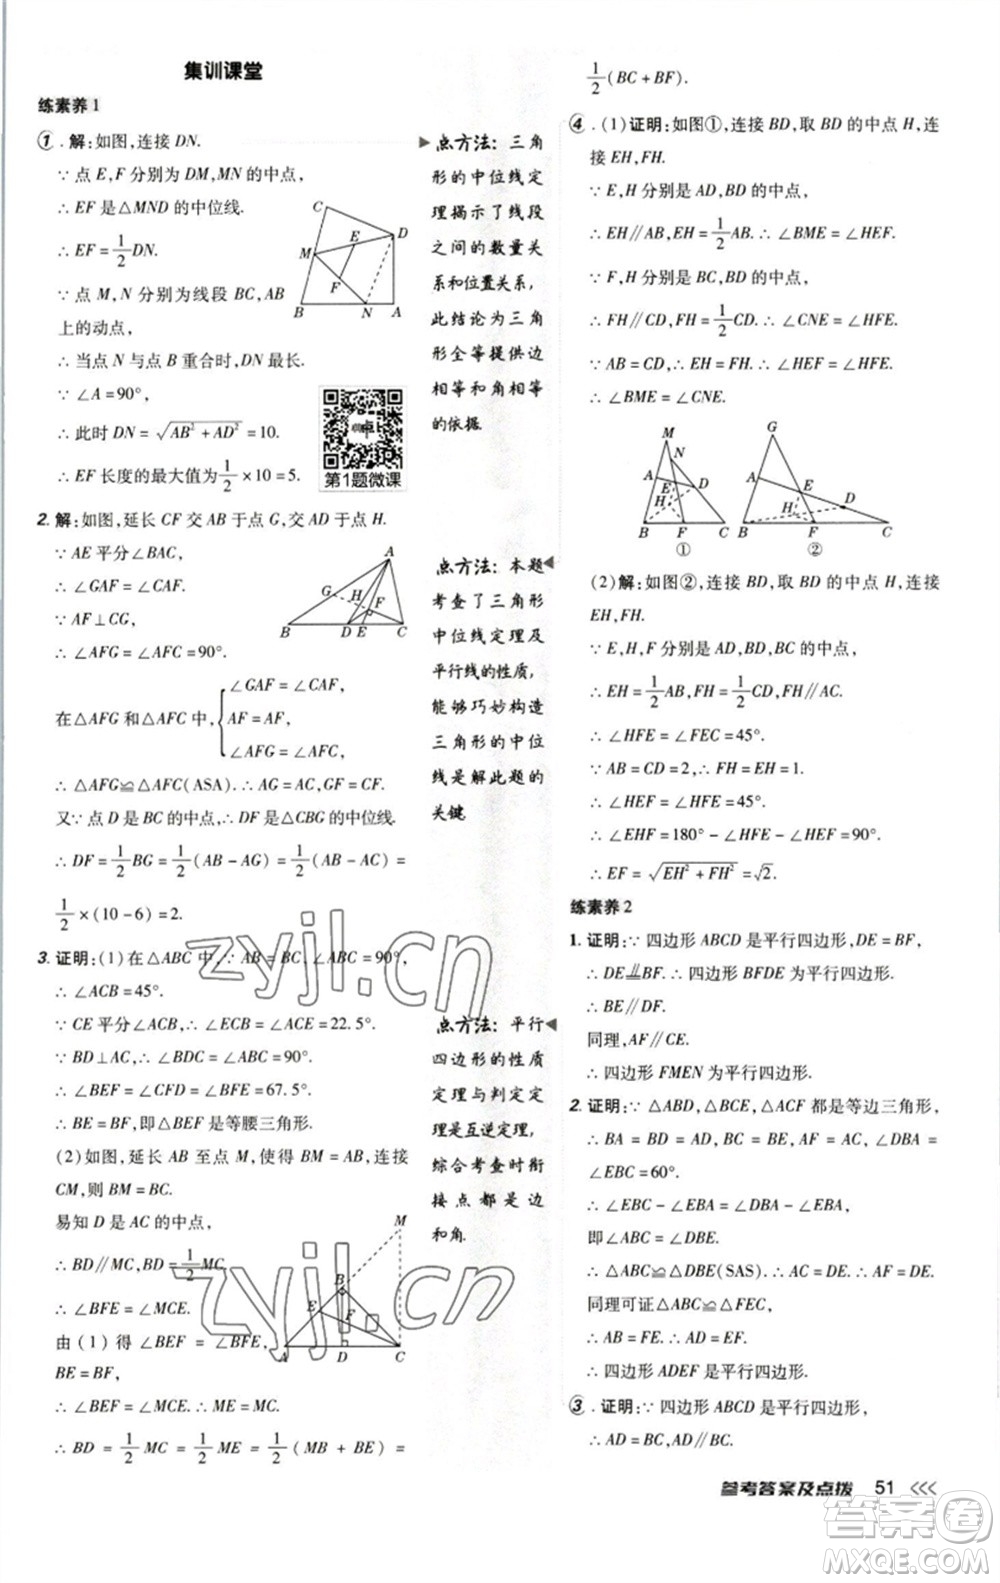 集训课堂
练素养 1
1. 解:如图,连接 DN.
∵ 点 E,F 分别为 DM,MN 的中点,
∴ EF 是△MND 的中位线.
∴ EF = 1/2 DN.
∵ 点 M, N 分别为线段 BC, AB
上的动点,
∴ 当点 N 与点 B 重合时,DN 最长.
∵ ∠A = 90°,
∴ 此时 DN = √(AB² + AD²) = 10.
∴ EF 长度的最大值为 1/2 × 10 = 5.
C
D
E
M
F
B
N
A
第1题微课
2. 解:如图,延长 CF 交 AB 于点 G,交 AD 于点 H.
∵ AE 平分∠BAC,
∴ ∠GAF = ∠CAF.
∵ AF⊥CG,
∴ ∠AFG = ∠AFC = 90°.
A
G
H
F
B
D
E
C
在△AFG 和△AFC 中, { ∠GAF = ∠CAF,
AF = AF,
∠AFG = ∠AFC,
∴ △AFG≌△AFC(ASA). ∴ AG = AC, GF = CF.
又∵ 点 D 是 BC 的中点,∴ DF 是△CBG 的中位线.
∴ DF = 1/2 BG = 1/2 (AB − AG) = 1/2 (AB − AC) =
1/2 × (10 − 6) = 2.
3. 证明:(1) 在△ABC 中,∵ AB = BC, ∠ABC = 90°,
∴ ∠ACB = 45°.
∵ CE 平分∠ACB, ∴ ∠ECB = ∠ACE = 22.5°.
∵ BD⊥AC, ∴ ∠BDC = ∠BDA = 90°.
∴ ∠BEF = ∠CFD = ∠BFE = 67.5°.
∴ BE = BF,即△BEF 是等腰三角形.
(2) 如图,延长 AB 至点 M,使得 BM = AB,连接
CM,则 BM = BC.
易知 D 是 AC 的中点,
∴ BD∥MC, BD = 1/2 MC.
∴ ∠BFE = ∠MCE.
由 (1) 得 ∠BEF = ∠BFE,
BE = BF.
∴ ∠BEF = ∠MCE. ∴ ME = MC.
∴ BD = 1/2 MC = 1/2 ME = 1/2 (MB + BE) =
M
B
E
F
A
D
C
点方法: 三角
形的中位线定
理揭示了线段
之间的数量关
系和位置关系,
此结论为三角
形全等提供边
相等和角相等
的依据.
点方法: 本题
考查了三角形
中位线定理及
平行线的性质,
能够巧妙构造
三角形的中位
线是解此题的
关键.
点方法: 平行
四边形的性质
定理与判定定
理是互逆定理,
综合考查时衔
接点都是边
和角.
1/2 (BC + BF).
4. (1) 证明:如图①,连接 BD,取 BD 的中点 H,连
接 EH,FH.
∵ E,H 分别是 AD,BD 的中点,
∴ EH∥AB, EH = 1/2 AB. ∴ ∠BME = ∠HEF.
∵ F,H 分别是 BC,BD 的中点,
∴ FH∥CD, FH = 1/2 CD. ∴ ∠CNE = ∠HFE.
∵ AB = CD, ∴ EH = FH. ∴ ∠HFE = ∠HEF.
∴ ∠BME = ∠CNE.
M
N
A
E
D
H
B
F
C
①
G
A
E
D
H
B
F
C
②
(2) 解:如图②,连接 BD,取 BD 的中点 H,连接
EH,FH.
∵ E,H,F 分别为 AD,BD,BC 的中点,
∴ EH = 1/2 AB, FH = 1/2 CD, FH∥AC.
∴ ∠HFE = ∠FEC = 45°.
∵ AB = CD = 2, ∴ FH = EH = 1.
∴ ∠HEF = ∠HFE = 45°.
∴ ∠EHF = 180° − ∠HFE − ∠HEF = 90°.
∴ EF = √(EH² + FH²) = √2.
练素养 2
1. 证明:∵ 四边形 ABCD 是平行四边形,DE = BF,
∴ DE∥BF. ∴ 四边形 BFDE 为平行四边形.
∴ BE∥DF.
同理,AF∥CE.
∴ 四边形 FMEN 为平行四边形.
2. 证明:∵ △ABD, △BCE, △ACF 都是等边三角形,
∴ BA = BD = AD, BC = BE, AC = AF, ∠DBA =
∠EBC = 60°.
∴ ∠EBC − ∠EBA = ∠DBA − ∠EBA,
即∠ABC = ∠DBE.
∴ △ABC≌△DBE(SAS). ∴ AF = AC = DE.
同理可证△ABC≌△FEC,
∴ AB = FE = AD.
∴ 四边形 ADEF 是平行四边形.
3. 证明:∵ 四边形 ABCD 是平行四边形,
∴ AD = BC, AD∥BC.
参考答案及点拨 51
zyjl.cn
zyjl.cn
答案圈
MXQE.COM